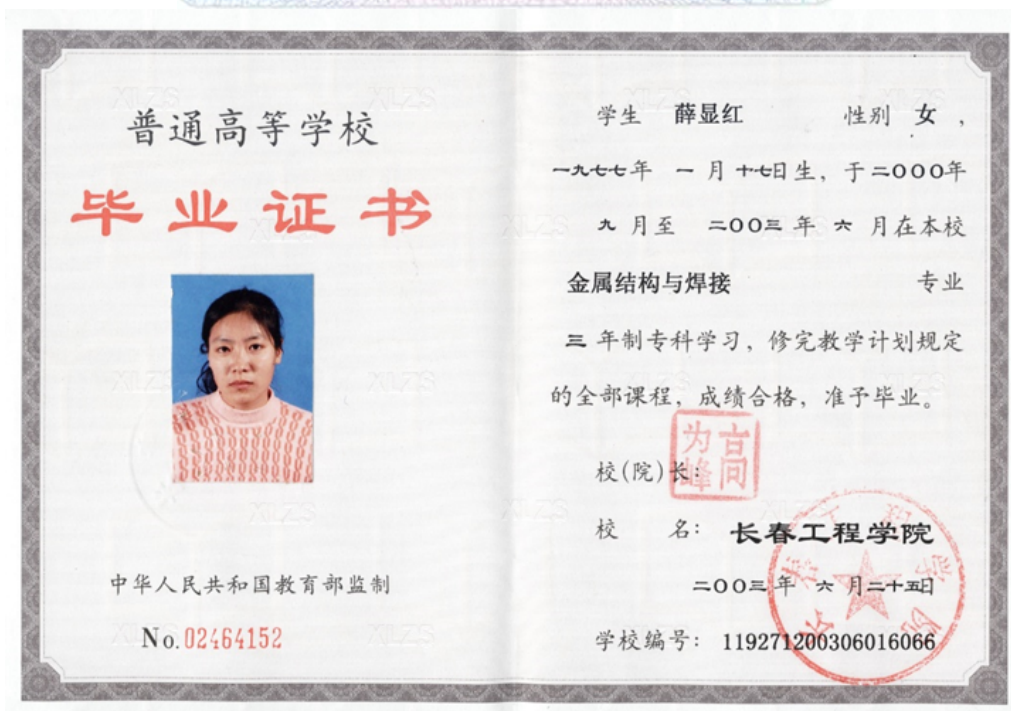 普通高等学校
毕业证书
中华人民共和国教育部监制
No. 02464152
学生 薛显红 性别 女，
一九七七年 一 月 十七日生，于二〇〇〇年
九 月至 二〇〇三 年 六 月在本校
金属结构与焊接 专业
三 年制专科学习，修完教学计划规定
的全部课程，成绩合格，准予毕业。
校(院)长：
高为峰
校 名： 长春工程学院
长春工程学院
二〇〇三 年 六 月二十五日
学校编号： 119271200306016066
XLZS